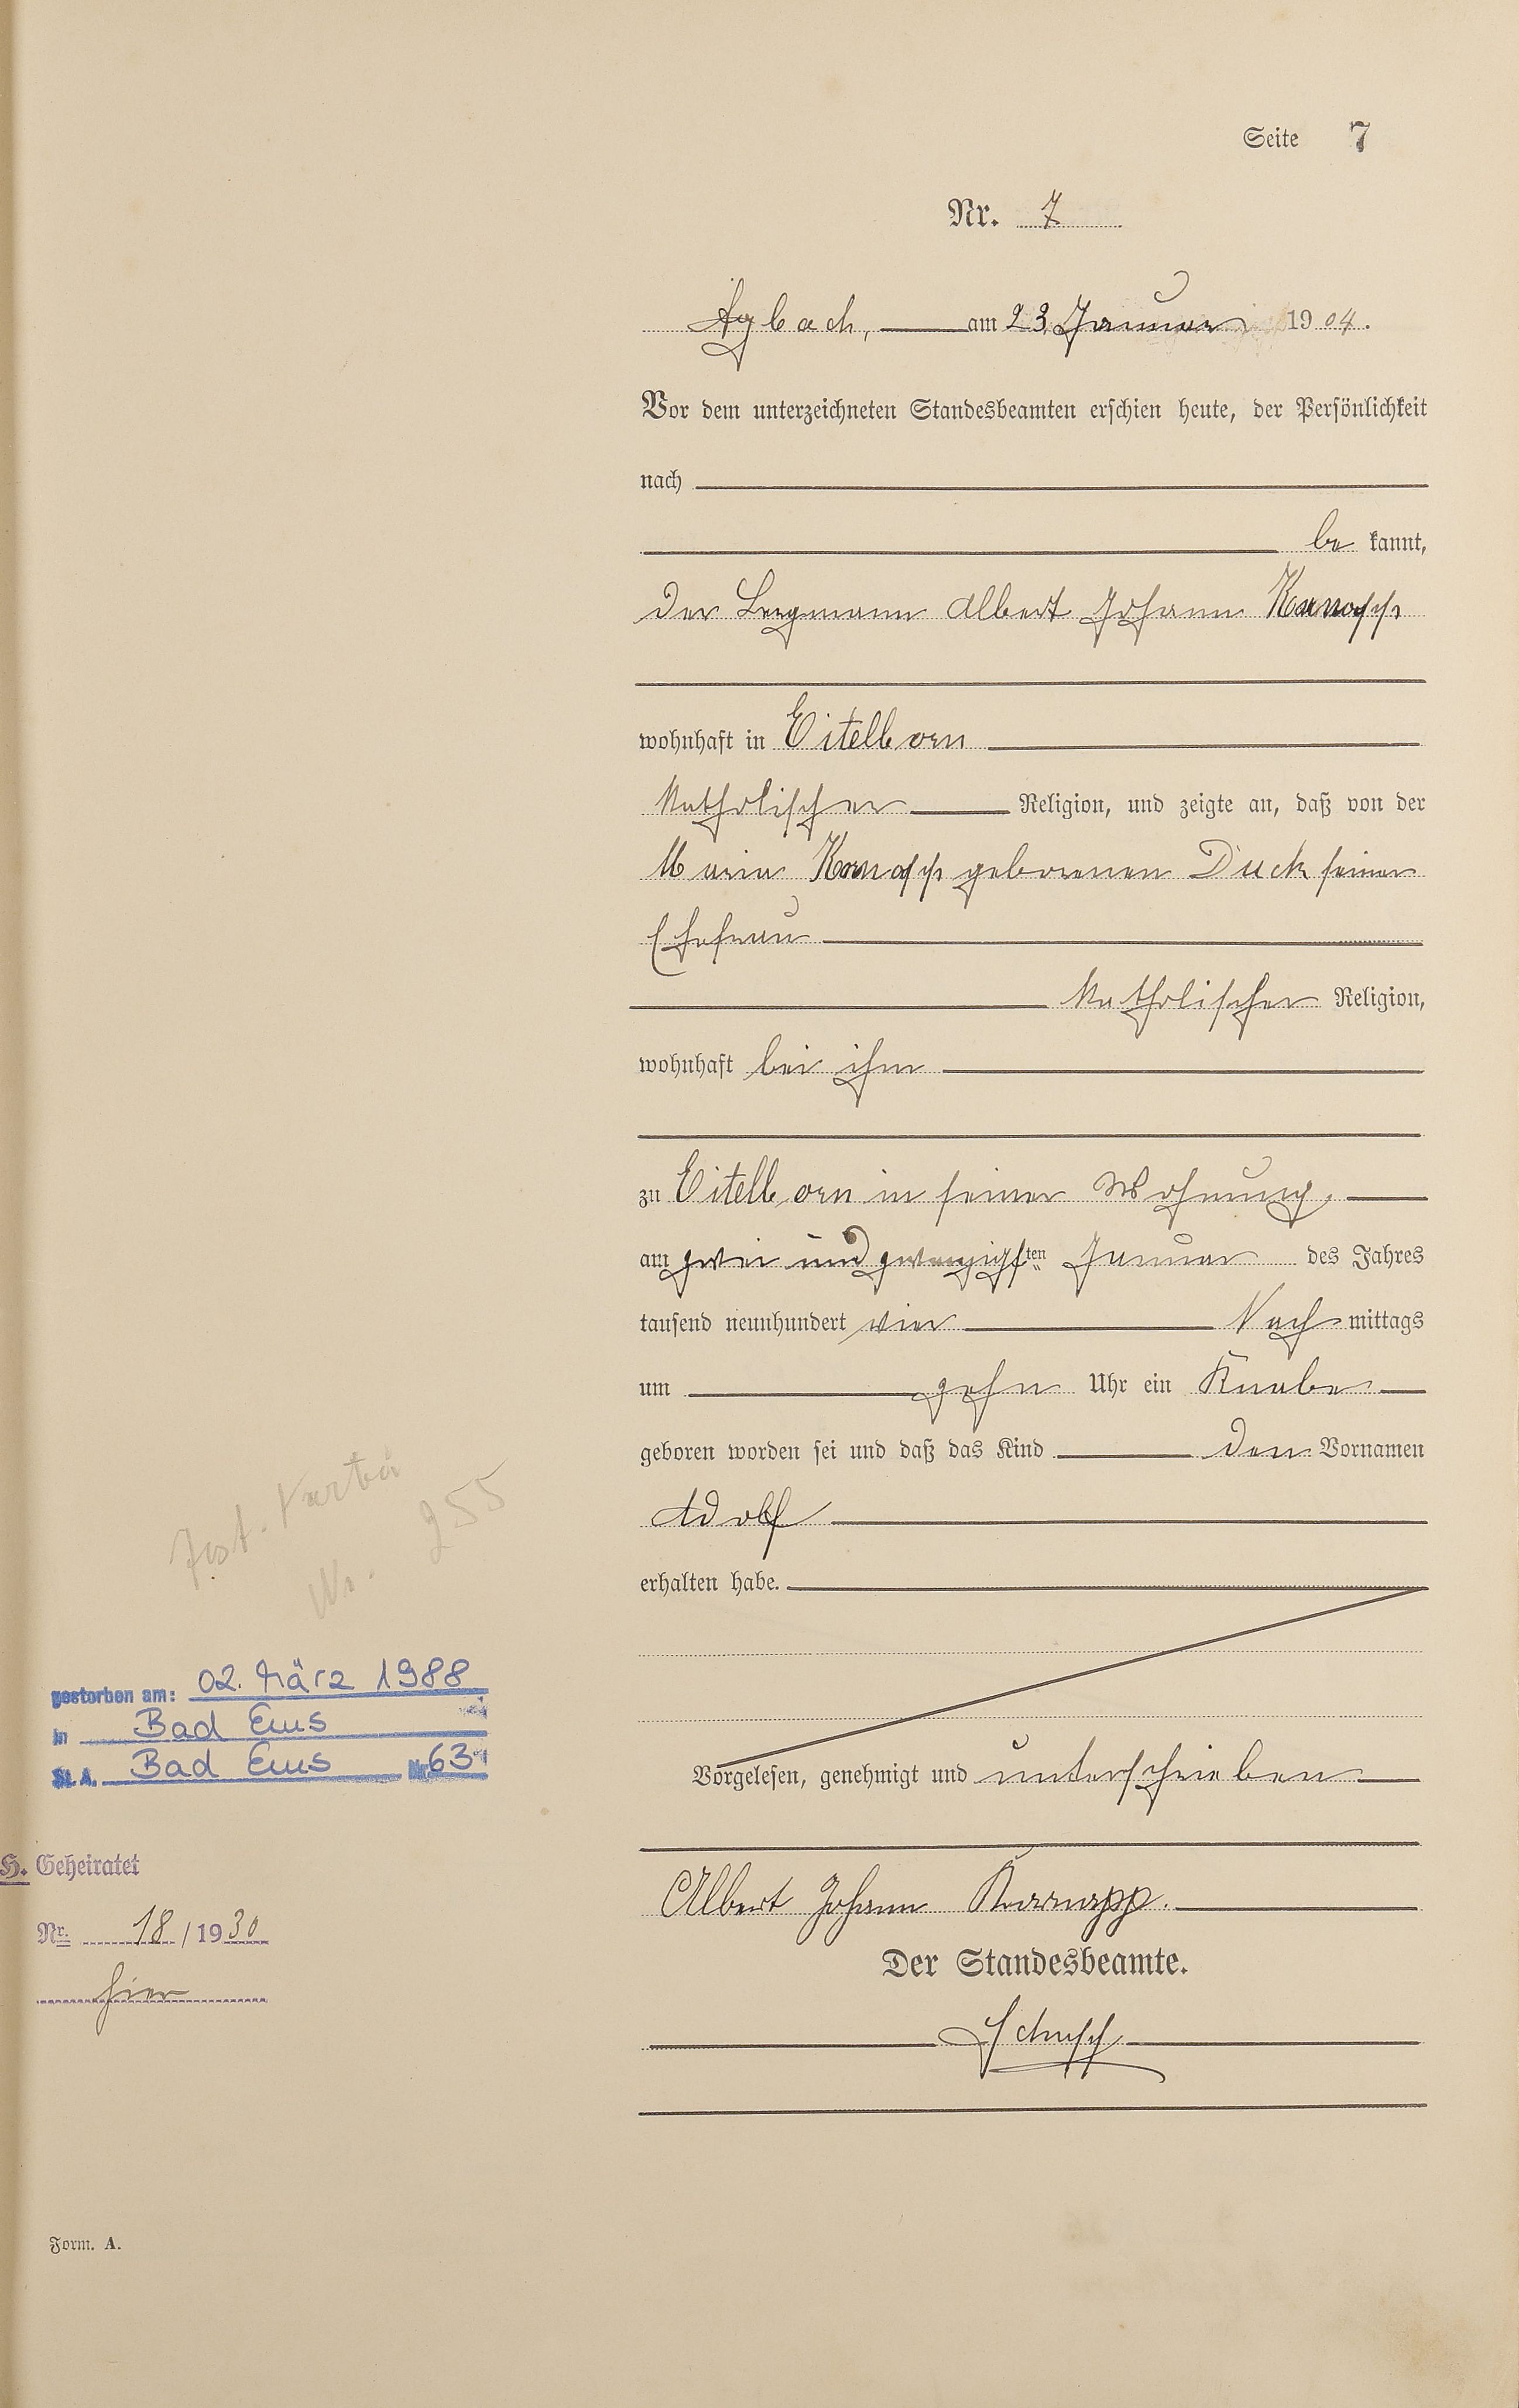 Seite 7
Nr. 7
Arzbach, am 23. Januar 1904.
Vor dem unterzeichneten Standesbeamten erschien heute, der Persönlichkeit
nach
be kannt,
der Bergmann Albert Johann Karnapp
wohnhaft in Eitelborn
katholischer Religion, und zeigte an, daß von der
Maria Karnapp geborenen Duck seiner
Ehefrau
katholischer Religion,
wohnhaft bei ihm
zu Eitelborn in seiner Wohnung,
am zwei und zwanzigsten Januar des Jahres
tausend neunhundert vier Nach mittags
um zehn Uhr ein Knabe
geboren worden sei und daß das Kind den Vornamen
Adolf
erhalten habe.
Vorgelesen, genehmigt und unterschrieben
Albert Johann Karnapp.
Der Standesbeamte.
Nr. 255
gestorben am: 02. März 1988
in Bad Ems
St. A. Bad Ems Nr. 63
H. Geheiratet
Nr. 18 / 1930
hier
Form. A.